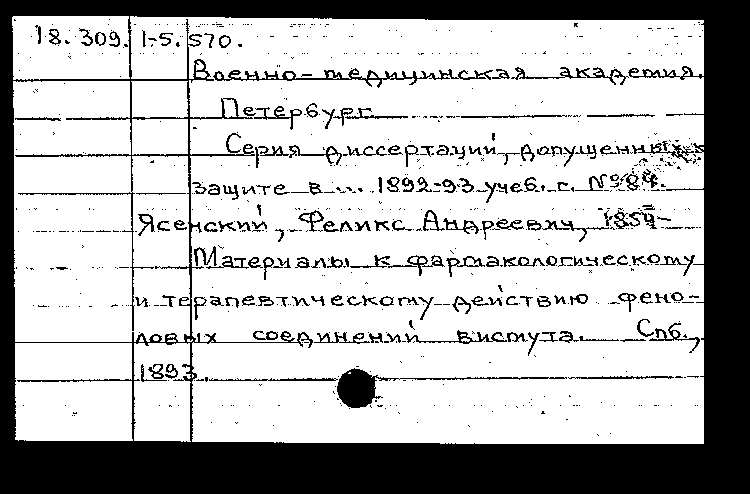 18.309. 1-5.570.
Военно-медицинская академия.
Петербург.
Серия диссертаций, допущенных к
защите в ... 1892-93 учеб. г. №84.
Ясенский, Феликс Андреевич, 1859-
Материалы к фармакологическому
и терапевтическому действию фено-
ловых соединений висмута. Спб.,
1893.